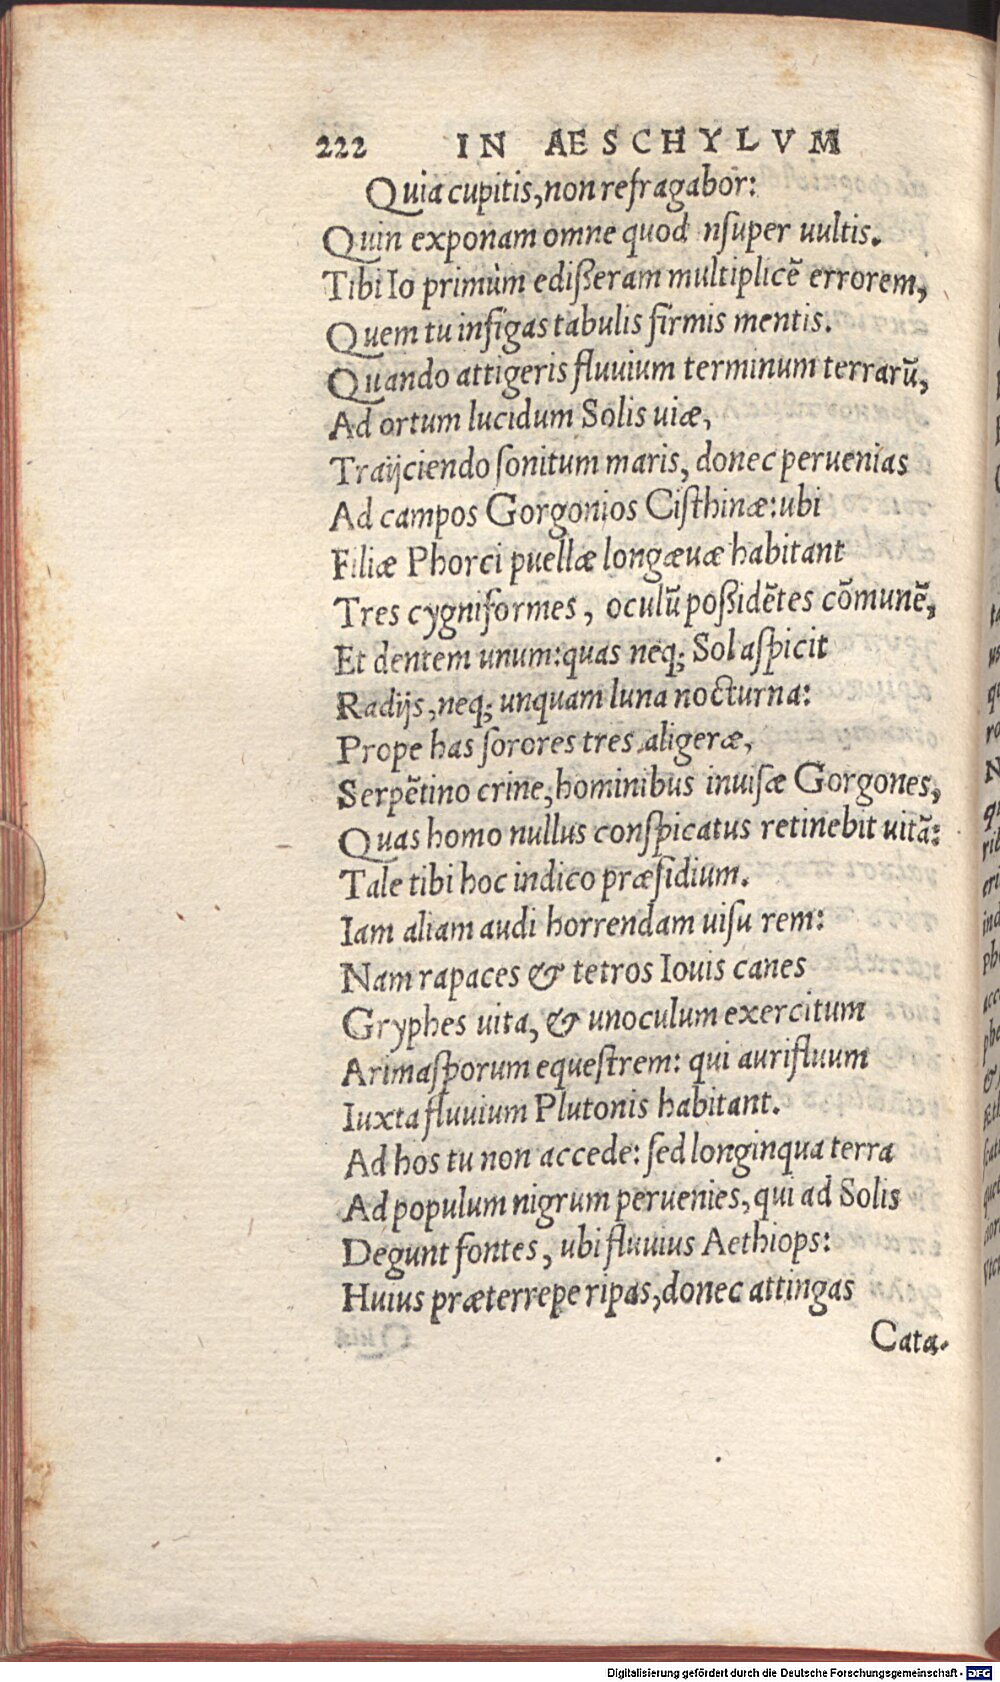 222 IN AESCHYLVM
Quia cupitis, non refragabor:
Quin exponam omne quod nsuper uultis.
Tibi Io primùm edißeram multiplicē errorem,
Quem tu infigas tabulis firmis mentis.
Quando attigeris fluuium terminum terrarū,
Ad ortum lucidum Solis uiæ,
Traijciendo ſonitum maris, donec peruenias
Ad campos Gorgonios Ciſthinæ: ubi
Filiæ Phorci puellæ longæuæ habitant
Tres cygniformes, oculū poßidētes cōmunē,
Et dentem unum: quas neq; Sol aſpicit
Radijs, neq; unquam luna nocturna:
Prope has ſorores tres aligeræ,
Serpētino crine, hominibus inuiſæ Gorgones,
Quas homo nullus conſpicatus retinebit uitã:
Tale tibi hoc indico præſidium.
Iam aliam audi horrendam uiſu rem:
Nam rapaces & tetros Iouis canes
Gryphes uita, & unoculum exercitum
Arimaſporum equeſtrem: qui aurifluum
Iuxta fluuium Plutonis habitant.
Ad hos tu non accede: ſed longinqua terra
Ad populum nigrum peruenies, qui ad Solis
Degunt fontes, ubi fluuius Aethiops:
Huius præterrepe ripas, donec attingas
Cata-
Digitalisierung gefördert durch die Deutsche Forschungsgemeinschaft - DFG